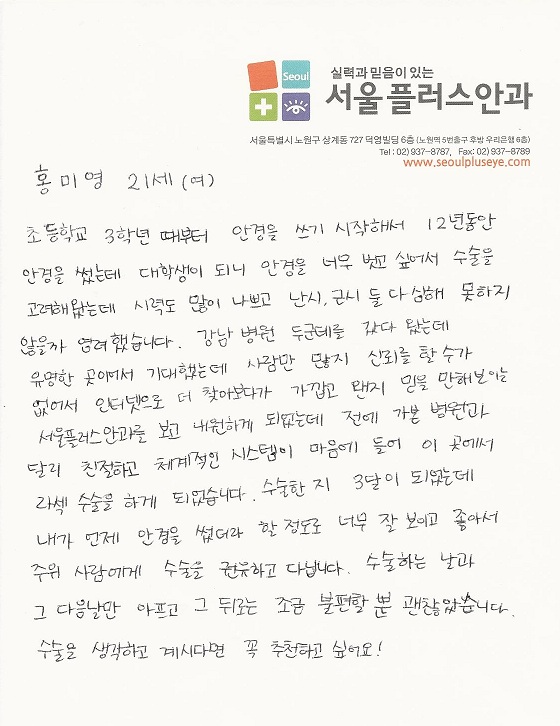 Seoul
실력과 믿음이 있는
서울플러스안과
서울특별시 노원구 상계동 727 덕영빌딩 6층 (노원역 5번출구 후방 우리은행 6층)
Tel : 02) 937-8787,  Fax: 02) 937-8789
www.seoulpluseye.com
홍미영 21세 (여)
초등학교 3학년 때부터 안경을 쓰기 시작해서 12년동안
안경을 썼는데 대학생이 되니 안경을 너무 벗고 싶어서 수술을
고려해왔는데 시력도 많이 나쁘고 난시, 근시 둘 다 심해 못하지
않을까 염려했습니다. 강남 병원 두군데를 갔다 왔는데
유명한 곳이어서 기대했는데 사람만 많지 신뢰를 할 수가
없어서 인터넷으로 더 찾아보다가 가깝고 왠지 믿을 만해보이는
서울플러스안과를 보고 내원하게 되었는데 전에 가본 병원과
달리 친절하고 체계적인 시스템이 마음에 들어 이 곳에서
라섹 수술을 하게 되었습니다. 수술한 지 3달이 되었는데
내가 언제 안경을 썼더라 할 정도로 너무 잘 보이고 좋아서
주위 사람에게 수술을 권유하고 다닙니다. 수술하는 날과
그 다음날만 아프고 그 뒤로는 조금 불편할 뿐 괜찮았습니다.
수술을 생각하고 계시다면 꼭 추천하고 싶어요!